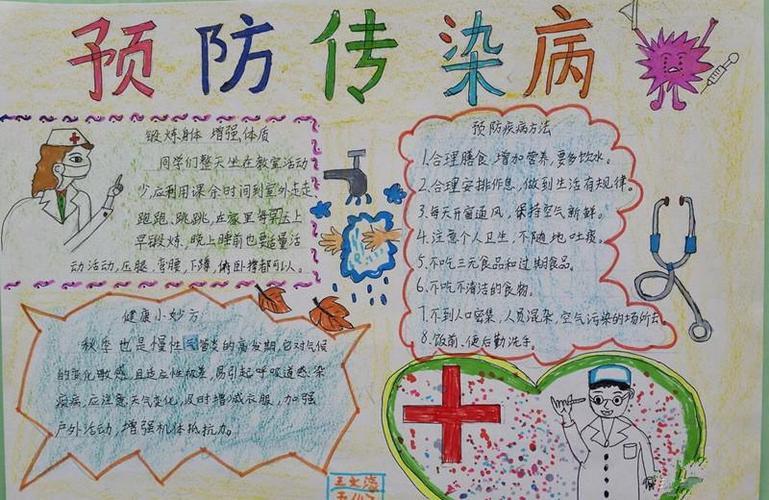 预防传染病
锻炼身体 增强体质
同学们整天坐在教室活动
少,应利用课余时间到室外走走、
跑跑、跳跳,在家里每天早上
早锻炼,晚上睡前也要适量活
动活动,压腿,弯腰,下蹲,俯卧撑都可以。
预防疾病方法
1.合理膳食,增加营养,要多饮水。
2.合理安排作息,做到生活有规律。
3.每天开窗通风,保持空气新鲜。
4.注意个人卫生,不随地吐痰。
5.不吃三元食品和过期食品。
6.不吃不清洁的食物。
7.不到人口密集,人员混杂,空气污染的场所去。
8.饭前、便后勤洗手。
健康小妙方
秋季也是慢性气管炎的高发期,它对气候
的变化敏感,且适应性极差,易引起呼吸道感染
疾病,应注意天气变化,及时增减衣服,加强
户外活动,增强机体抵抗力。